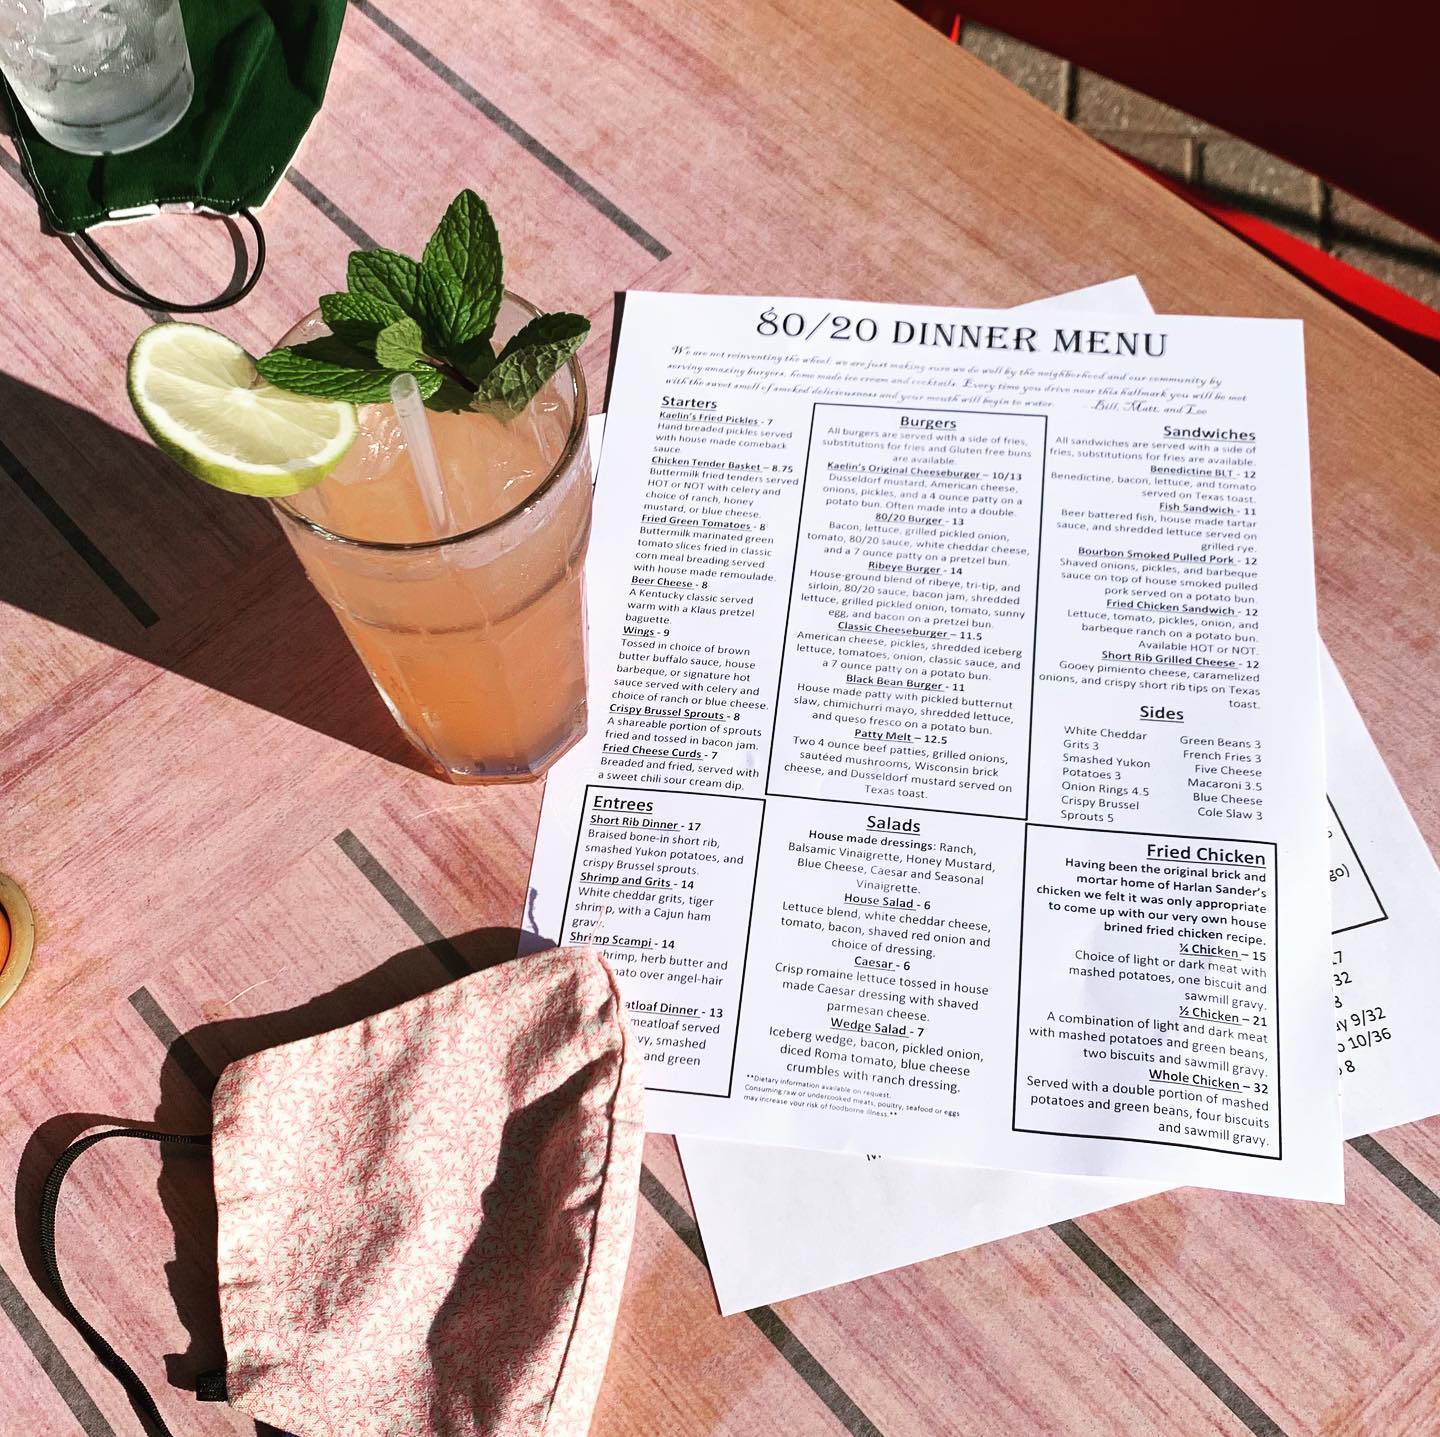 80/20 DINNER MENU
We are not reinventing the wheel, we are just making sure we do well by the neighborhood and our community by
serving amazing burgers, home made ice cream and cocktails. Every time you drive near this hallmark you will be met
with the sweet smell of smoked deliciousness and your mouth will begin to water. -Bill, Matt, and
Starters
Kaelin's Fried Pickles - 7
Hand breaded pickles served
with house made comeback
sauce.
Chicken Tender Basket – 8.75
Buttermilk fried tenders served
HOT or NOT with celery and
choice of ranch, honey
mustard, or blue cheese.
Fried Green Tomatoes - 8
Buttermilk marinated green
tomato slices fried in classic
corn meal breading served
with house made remoulade.
Beer Cheese - 8
A Kentucky classic served
warm with a Klaus pretzel
baguette.
Wings - 9
Tossed in choice of brown
butter buffalo sauce, house
barbeque, or signature hot
sauce served with celery and
choice of ranch or blue cheese.
Crispy Brussel Sprouts - 8
A shareable portion of sprouts
fried and tossed in bacon jam.
Fried Cheese Curds - 7
Breaded and fried, served with
a sweet chili sour cream dip.
Burgers
All burgers are served with a side of fries,
substitutions for fries and Gluten free buns
are available.
Kaelin's Original Cheeseburger – 10/13
Dusseldorf mustard, American cheese,
onions, pickles, and a 4 ounce patty on a
potato bun. Often made into a double.
80/20 Burger - 13
Bacon, lettuce, grilled pickled onion,
tomato, 80/20 sauce, white cheddar cheese,
and a 7 ounce patty on a pretzel bun.
Ribeye Burger - 14
House-ground blend of ribeye, tri-tip, and
sirloin, 80/20 sauce, bacon jam, shredded
lettuce, grilled pickled onion, tomato, sunny
egg, and bacon on a pretzel bun.
Classic Cheeseburger – 11.5
American cheese, pickles, shredded iceberg
lettuce, tomatoes, onion, classic sauce, and
a 7 ounce patty on a potato bun.
Black Bean Burger - 11
House made patty with pickled butternut
slaw, chimichurri mayo, shredded lettuce,
and queso fresco on a potato bun.
Patty Melt – 12.5
Two 4 ounce beef patties, grilled onions,
sautéed mushrooms, Wisconsin brick
cheese, and Dusseldorf mustard served on
Texas toast.
Sandwiches
All sandwiches are served with a side of
fries, substitutions for fries are available.
Benedictine BLT - 12
Benedictine, bacon, lettuce, and tomato
served on Texas toast.
Fish Sandwich - 11
Beer battered fish, house made tartar
sauce, and shredded lettuce served on
grilled rye.
Bourbon Smoked Pulled Pork - 12
Shaved onions, pickles, and barbeque
sauce on top of house smoked pulled
pork served on a potato bun.
Fried Chicken Sandwich - 12
Lettuce, tomato, pickles, onion, and
barbeque ranch on a potato bun.
Available HOT or NOT.
Short Rib Grilled Cheese - 12
Gooey pimiento cheese, caramelized
onions, and crispy short rib tips on Texas
toast.
Sides
White Cheddar
Grits 3
Smashed Yukon
Potatoes 3
Onion Rings 4.5
Crispy Brussel
Sprouts 5
Green Beans 3
French Fries 3
Five Cheese
Macaroni 3.5
Blue Cheese
Cole Slaw 3
Entrees
Short Rib Dinner - 17
Braised bone-in short rib,
smashed Yukon potatoes, and
crispy Brussel sprouts.
Shrimp and Grits - 14
White cheddar grits, tiger
shrimp, with a Cajun ham
gravy.
Shrimp Scampi - 14
shrimp, herb butter and
over angel-hair
Dinner - 13
meatloaf served
smashed
and green
Salads
House made dressings: Ranch,
Balsamic Vinaigrette, Honey Mustard,
Blue Cheese, Caesar and Seasonal
Vinaigrette.
House Salad - 6
Lettuce blend, white cheddar cheese,
tomato, bacon, shaved red onion and
choice of dressing.
Caesar - 6
Crisp romaine lettuce tossed in house
made Caesar dressing with shaved
parmesan cheese.
Wedge Salad - 7
Iceberg wedge, bacon, pickled onion,
diced Roma tomato, blue cheese
crumbles with ranch dressing.
**Dietary information available on request.
Consuming raw or undercooked meats, poultry, seafood or eggs
may increase your risk of foodborne illness.**
Fried Chicken
Having been the original brick and
mortar home of Harlan Sander's
chicken we felt it was only appropriate
to come up with our very own house
brined fried chicken recipe.
¼ Chicken – 15
Choice of light or dark meat with
mashed potatoes, one biscuit and
sawmill gravy.
½ Chicken – 21
A combination of light and dark meat
with mashed potatoes and green beans,
two biscuits and sawmill gravy.
Whole Chicken – 32
Served with a double portion of mashed
potatoes and green beans, four biscuits
and sawmill gravy.
9/32
10/36
8